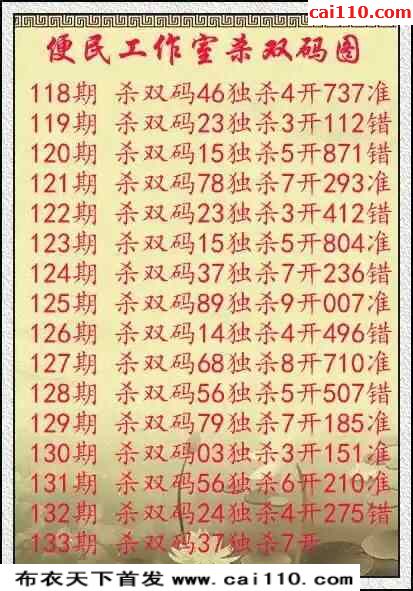 cai110.com
便民工作室杀双码图
118期 杀双码46独杀4开737准
119期 杀双码23独杀3开112错
120期 杀双码15独杀5开871错
121期 杀双码78独杀7开293准
122期 杀双码23独杀3开412错
123期 杀双码15独杀5开804准
124期 杀双码37独杀7开236错
125期 杀双码89独杀9开007准
126期 杀双码14独杀4开496错
127期 杀双码68独杀8开710准
128期 杀双码56独杀5开507错
129期 杀双码79独杀7开185准
130期 杀双码03独杀3开151准
131期 杀双码56独杀6开210准
132期 杀双码24独杀4开275错
133期 杀双码37独杀7开
布衣天下首发 www.cai110.com